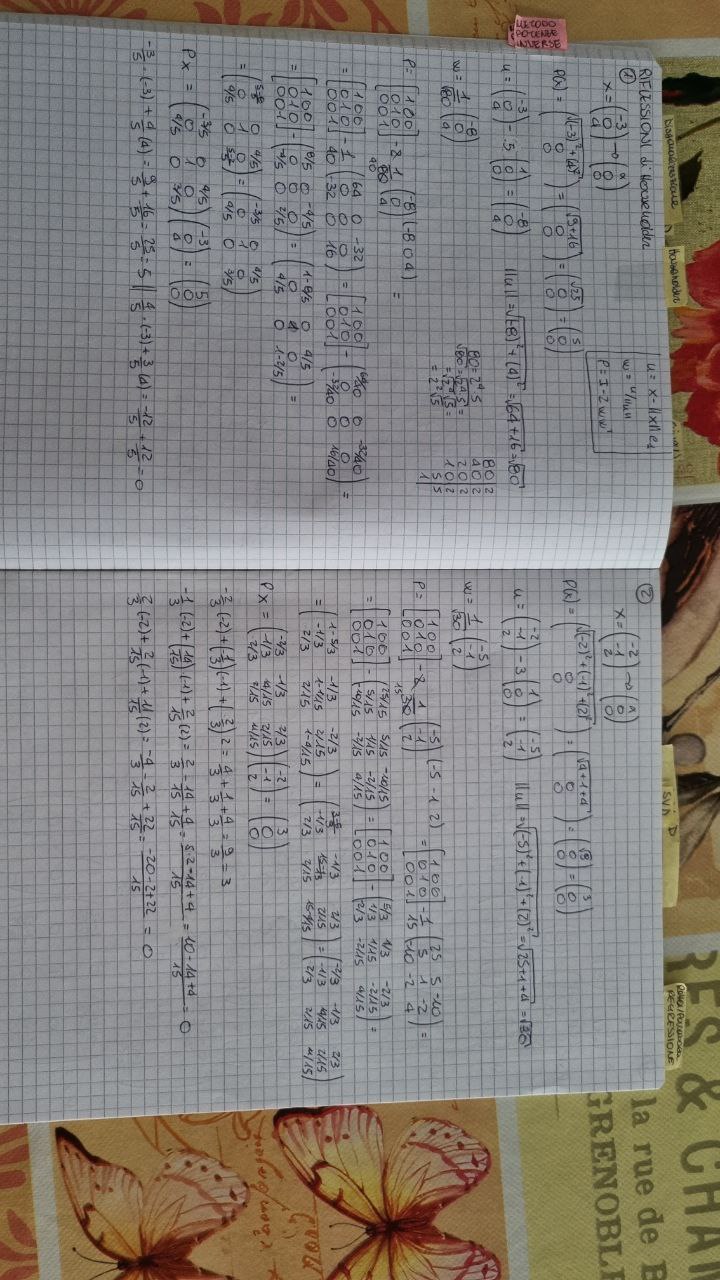 RES & CHAM
la rue de B
GRENOBLE
Diagonalizzazione
Householder
SVD
REGRESSIONE
METODO
POTENZE
INVERSE
RIFLESSIONI di Householder
u = x - ||x|| e₁
w = u/||u||
P = I - 2 w wᵀ
①
x = (-3 0 4) → (α 0 0)
P(x) = (√(-3)²+(4)² 0 0) = (√9+16 0 0) = (√25 0 0) = (5 0 0)
u = (-3 0 4) - 5 (1 0 0) = (-8 0 4) ||u|| = √(-8)²+(4)² = √64+16 = √80
w = 1/√80 (-8 0 4)
80 = 2⁴·5
√80 = √2⁴·5 =
= √2⁴ √5 =
= 2² √5
80 | 2
40 | 2
20 | 2
10 | 2
5 | 5
1 |
P = [1 0 0; 0 1 0; 0 0 1] - 2 1/80 40 (-8 0 4) (-8 0 4) =
= [1 0 0; 0 1 0; 0 0 1] - 1/40 (64 0 -32; 0 0 0; -32 0 16) = [1 0 0; 0 1 0; 0 0 1] - (64/40 0 -32/40; 0 0 0; -32/40 0 16/40) =
= [1 0 0; 0 1 0; 0 0 1] - (8/5 0 -4/5; 0 0 0; -4/5 0 2/5) = (1-8/5 0 4/5; 0 1 0; 4/5 0 1-2/5) =
= (5-8/5 0 4/5; 0 1 0; 4/5 0 5-2/5) = (-3/5 0 4/5; 0 1 0; 4/5 0 3/5)
Px = (-3/5 0 4/5; 0 1 0; 4/5 0 3/5) (-3 0 4) = (5 0 0)
-3/5 · (-3) + 4/5 (4) = 9/5 + 16/5 = 25/5 = 5 || 4/5 · (-3) + 3/5 (4) = -12/5 + 12/5 = 0
②
x = (-2 -1 2) → (α 0 0)
P(x) = (√(-2)²+(-1)²+(2)² 0 0) = (√4+1+4 0 0) = (√9 0 0) = (3 0 0)
u = (-2 -1 2) - 3 (1 0 0) = (-5 -1 2) ||u|| = √(-5)²+(-1)²+(2)² = √25+1+4 = √30
w = 1/√30 (-5 -1 2)
P = [1 0 0; 0 1 0; 0 0 1] - 2 1/30 15 (-5 -1 2) (-5 -1 2) = [1 0 0; 0 1 0; 0 0 1] - 1/15 (25 5 -10; 5 1 -2; -10 -2 4) =
= [1 0 0; 0 1 0; 0 0 1] - (25/15 5/15 -10/15; 5/15 1/15 -2/15; -10/15 -2/15 4/15) = [1 0 0; 0 1 0; 0 0 1] - (5/3 1/3 -2/3; 1/3 1/15 -2/15; 2/3 -2/15 4/15) =
= (1-5/3 -1/3 -2/3; -1/3 1-1/15 2/15; 2/3 2/15 1-4/15) = (3-5/3 -1/3 2/3; -1/3 15-1/15 2/15; 2/3 2/15 15-4/15) = (-2/3 -1/3 2/3; -1/3 14/15 2/15; 2/3 2/15 11/15)
Px = (-2/3 -1/3 2/3; -1/3 14/15 2/15; 2/3 2/15 11/15) (-2 -1 2) = (3 0 0)
-2/3 (-2) + (-1/3)(-1) + (2/3) 2 = 4/3 + 1/3 + 4/3 = 9/3 = 3
-1/3 (-2) + (14/15)·(-1) + 2/15 (2) = 2/3 - 14/15 + 4/15 = 5·2-14+4/15 = 10-14+4/15 = 0
2/3 (-2) + 2/15 (-1) + 11/15 (2) = -4/3 - 2/15 + 22/15 = -20-2+22/15 = 0